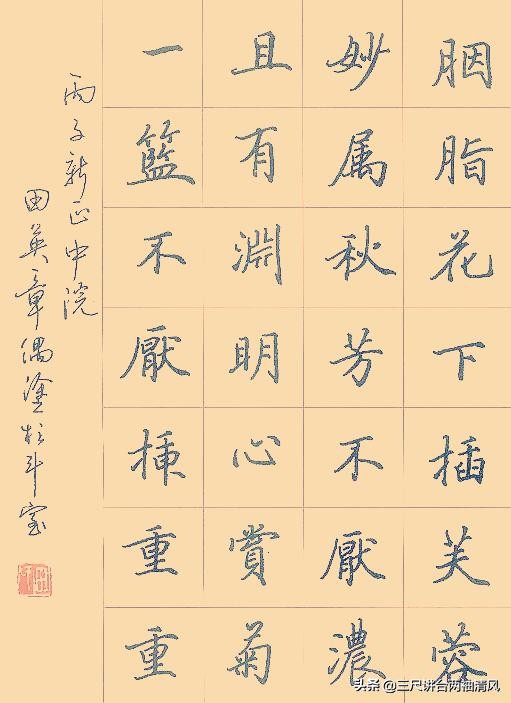 胭脂花下插芙蓉
妙属秋芳不厭濃
且有淵明心賞菊
一籃不厭挿重重
丙子新正中浣
田英章偶塗於斗室
头条 @三尺讲台两袖清风